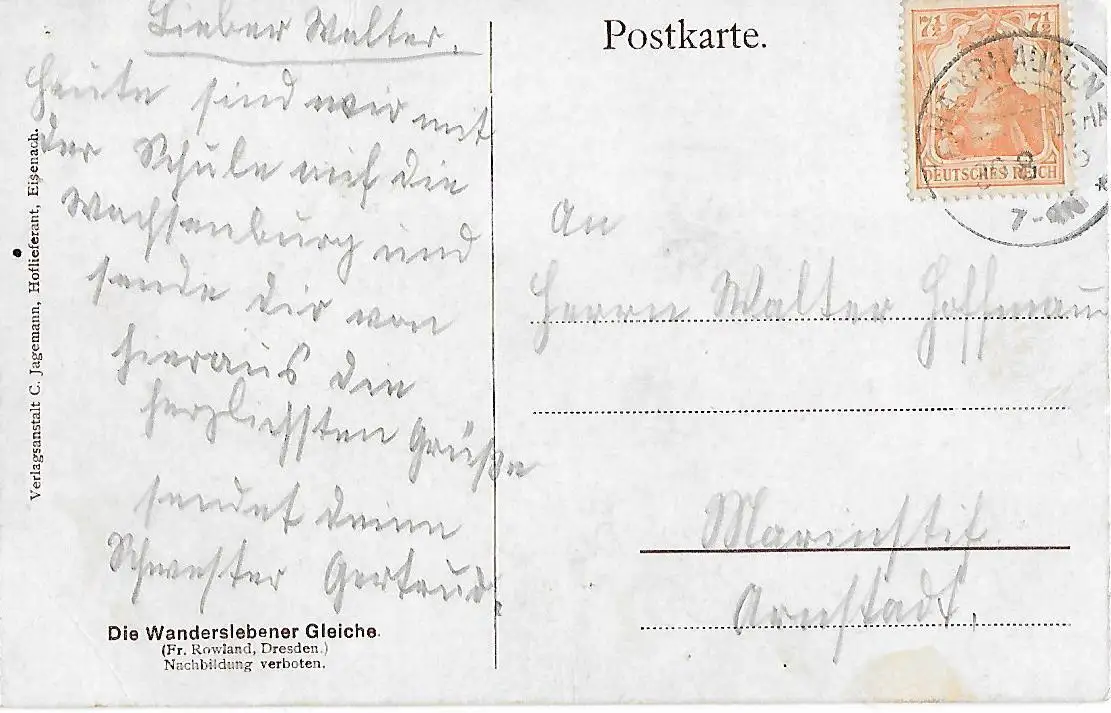 Lieber Walter.
Heute sind wir mit
der Schule auf die
Wachsenburg und
sende dir von
hieraus die
herzlichsten Grüße
sendet deine
Schwester Gertrud.
Die Wanderslebener Gleiche.
(Fr. Rowland, Dresden.)
Nachbildung verboten.
Verlagsanstalt C. Jagemann, Hoflieferant, Eisenach.
Postkarte.
7½ 7½
DEUTSCHES REICH
7-
An
Herrn Walter Hoffmann
Marinstif.
Arnstadt.